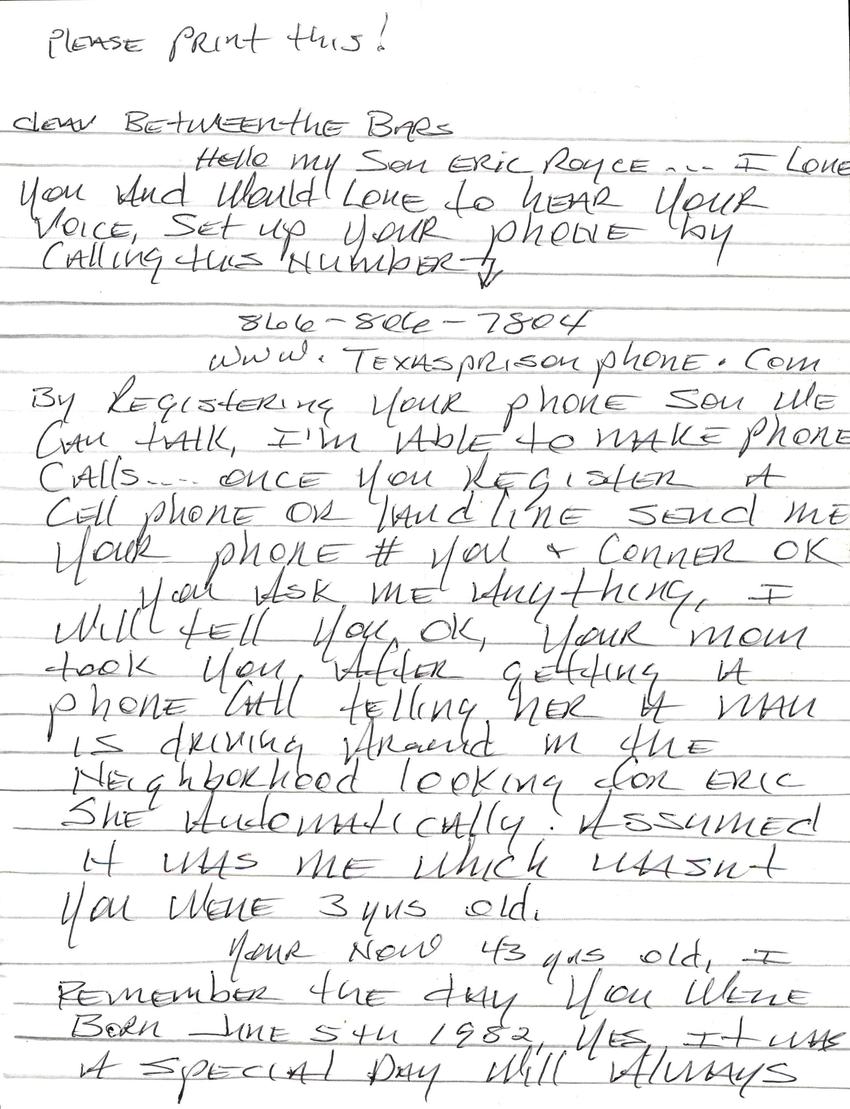 PLEASE PRINT this!
BETWEEN the BARS
Hello my Son ERIC Royce .... I LOVE
you And Would LOVE to hEAR YOUR
VOICE, SET up YOUR phONE by
CAlling this NUMbER
866-806-7804
www.TEXASpRISonphONE.Com
By REgISTERINg YOUR phONE SON WE
CAN tAlK, I'm Able to MAKE phONE
CAlls.... ONCE YOU REgISTER A
CEll phONE OR lANd lINE SENd ME
YOUR phONE # YOU + CONNER OK
YOU ASK ME ANything, I
Will tEll YOU, OK, YOUR mom
took YOU, AftER gEtting A
phONE CAll tElling hER A MAN
is dRiving AROUNd IN thE
NEighboRhood looking foR ERIC
ShE AutomAtiCAlly. ASSUMEd
It WAS ME which WASNt
YOU WERE 3 yrs old.
YOUR NOW 43 yrs old, I
REMEMbER thE dAy YOU WERE
BORN JUNE 5th 1982, YES, It WAS
A SPECIAL DAY Will AlWAYS